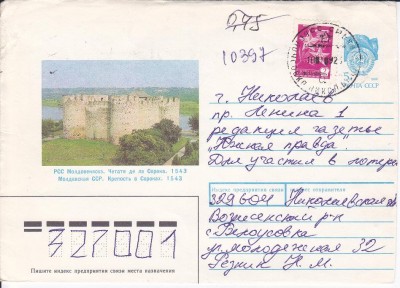 0,75
10397
5
ПОЧТА СССР
г. Николаев
пр. Ленина 1
редакция газеты
"Южная правда".
Для участия в лотерее
РСС Молдовеняскэ. Четате де ла Сорока. 1543
Молдавская ССР. Крепость в Сороках. 1543
Индекс предприятия связи и адрес отправителя
329604 Николаевская
Вознесенский р-н
с. Белоусовка
ул. Молодежная 32
Резник Н. М.
327001
Пишите индекс предприятия связи места назначения